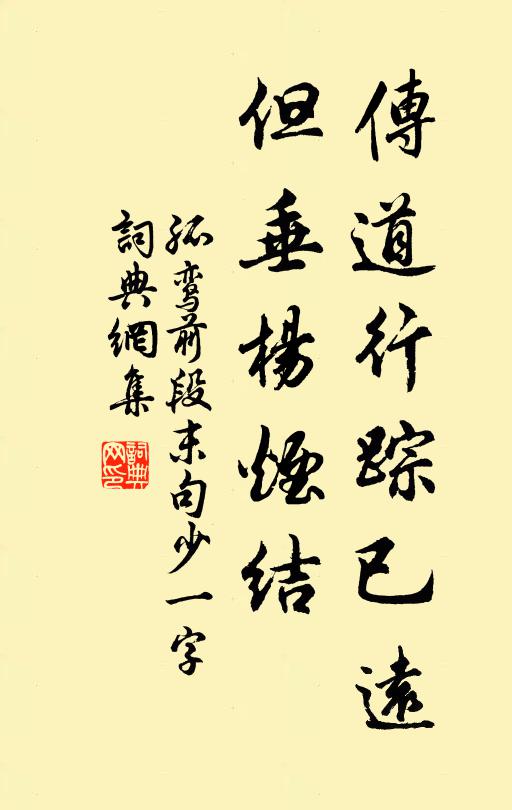 傳道行踪已遠
但垂楊煙結
孤鸾前段末句少一字
詞典網集
詞典网印